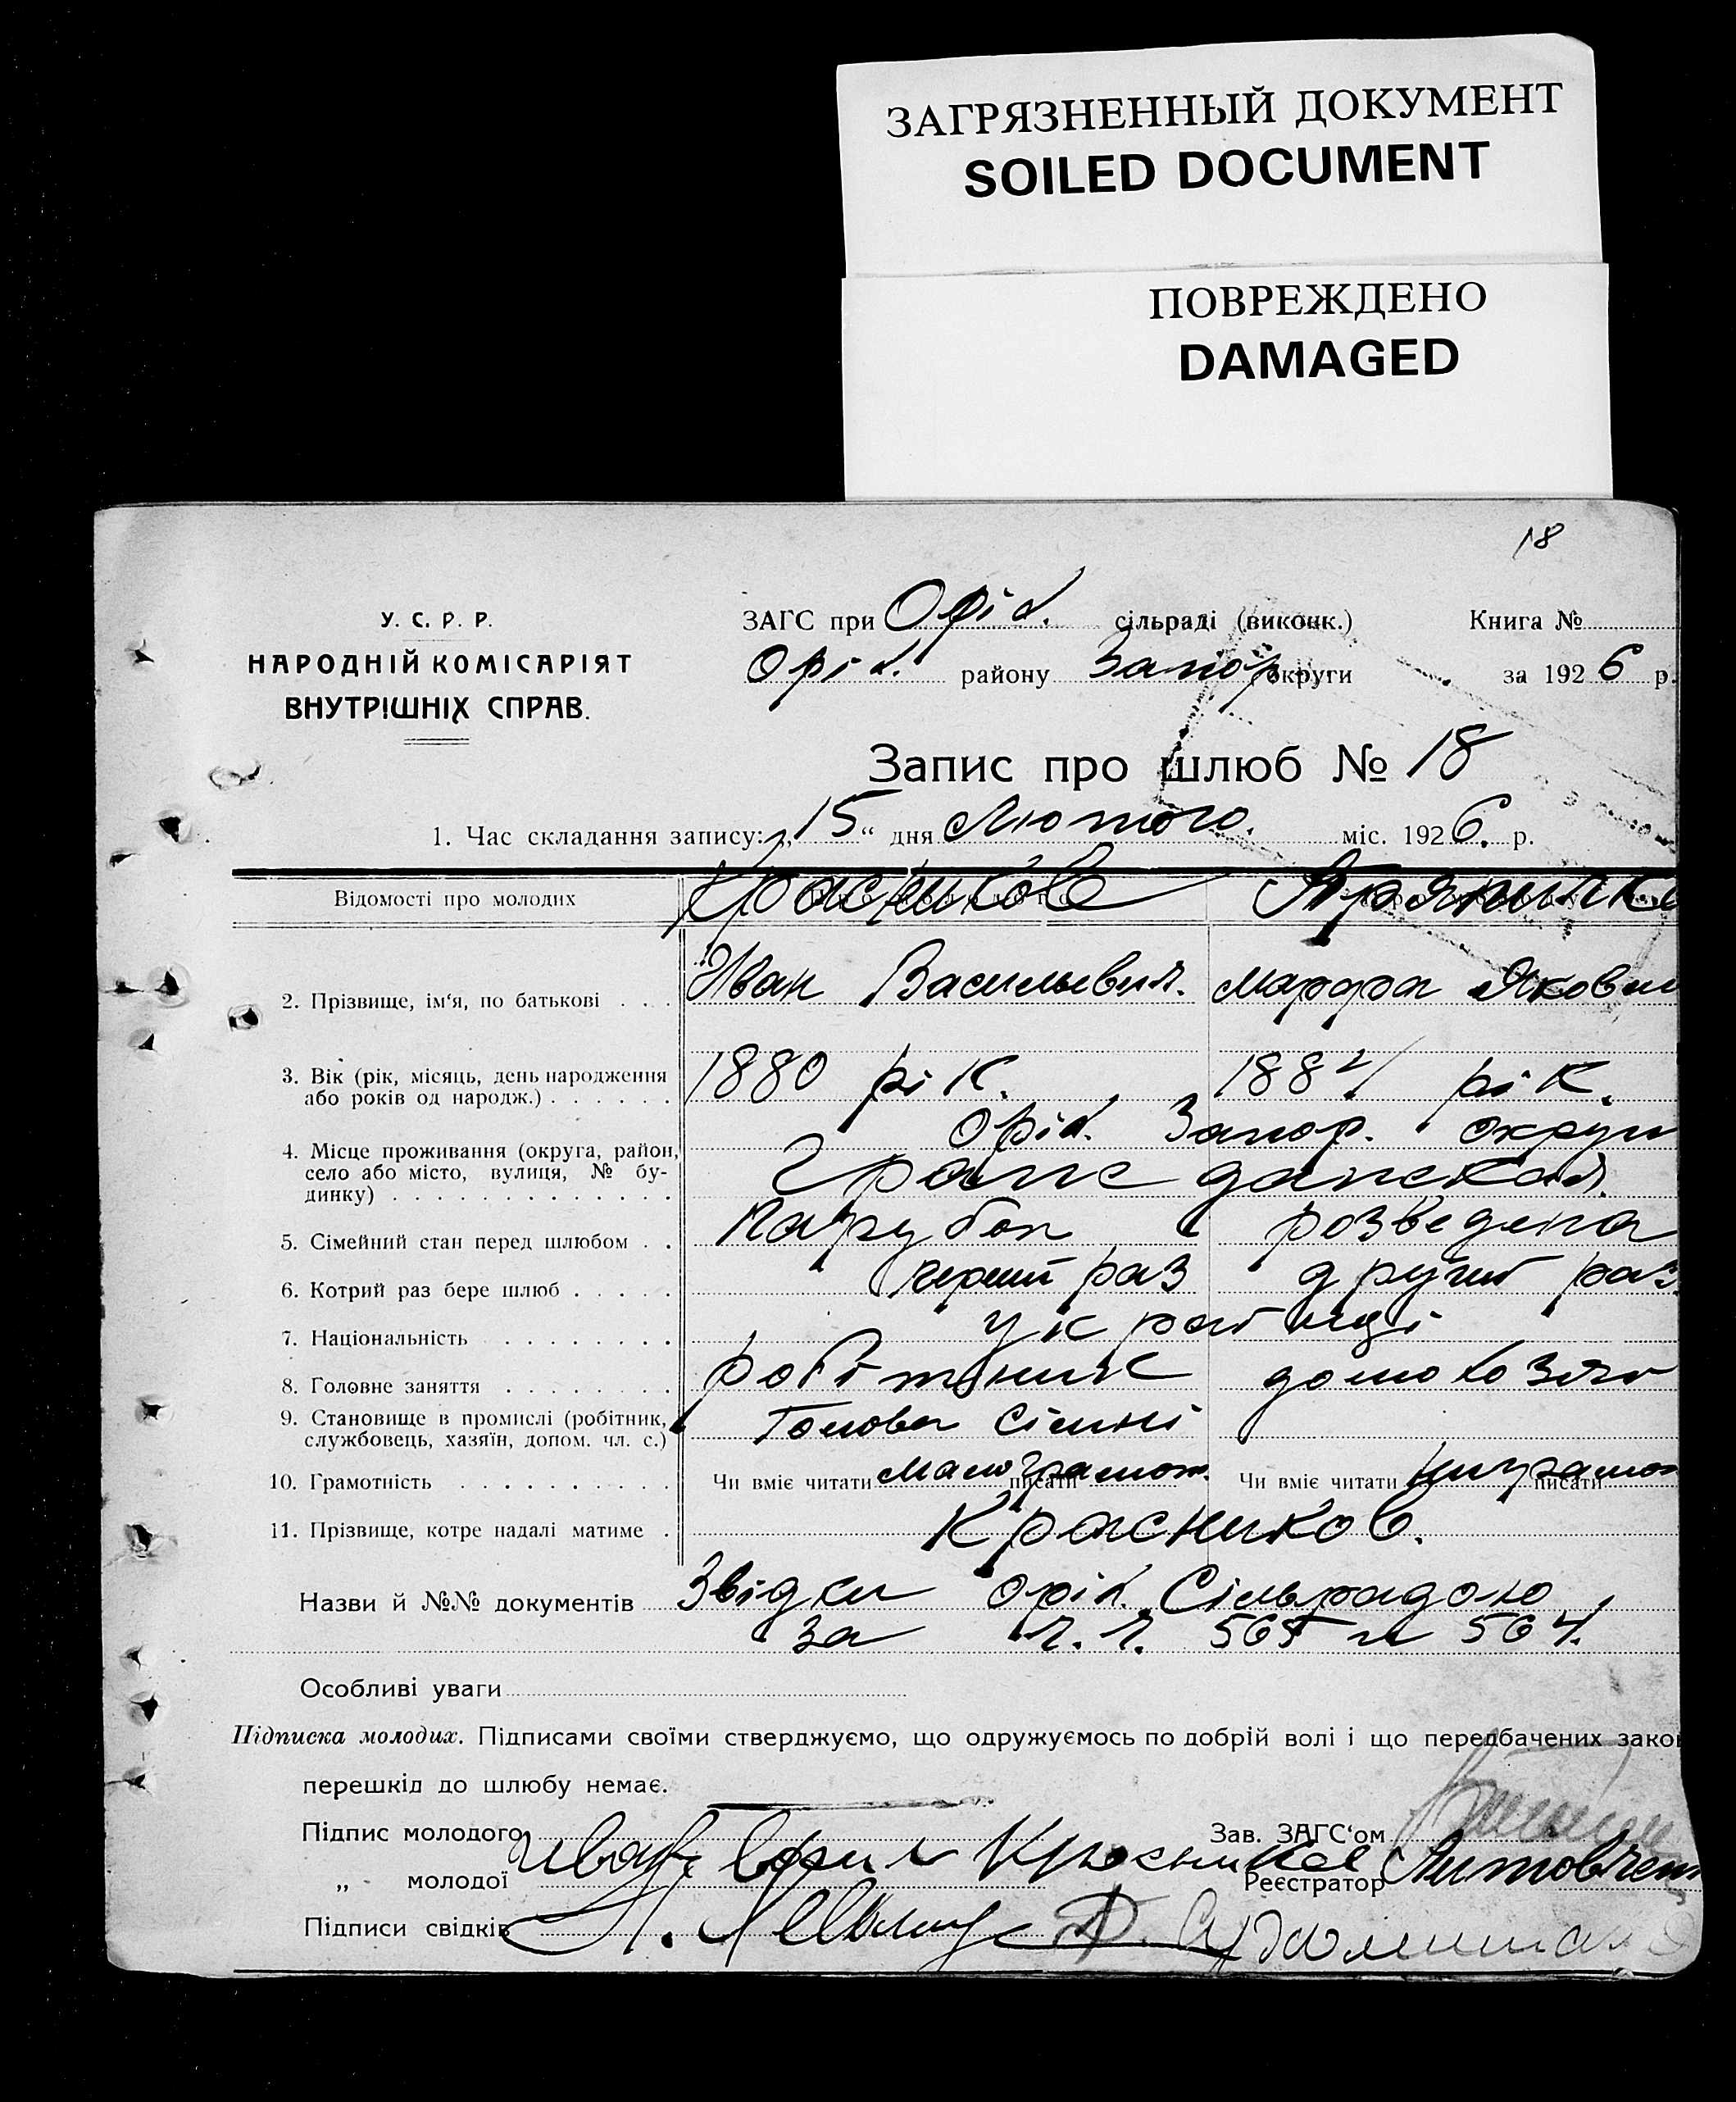 ЗАГРЯЗНЕННЫЙ ДОКУМЕНТ
SOILED DOCUMENT
ПОВРЕЖДЕНО
DAMAGED
18
У. С. Р. Р.
НАРОДНІЙ КОМІСАРІЯТ
ВНУТРІШНІХ СПРАВ.
ЗАГС при Оріх. сільраді (виконк.) Книга №
Оріх. району Запор. округи за 1926 р.
Запис про шлюб № 18
1. Час складання запису: „15“ дня Лютого. міс. 1926. р.
Відомості про молодих Красников
2. Прізвище, ім‘я, по батькові . . . Иван Васильевич. Марфа Яковл
3. Вік (рік, місяць, день народження 1880 рік. 1884 рік.
або років од народж.) . . . . . .
4. Місце проживання (округа, район, Оріх. Запор. округи
село або місто, вулиця, № бу- Гражданская.
динку) . . . . . . . . . . . . .
5. Сімейний стан перед шлюбом . . Парубок розведена
6. Котрий раз бере шлюб . . . . . перший раз другий раз
7. Національність . . . . . . . . українці
8. Головне заняття . . . . . . . . робітник домохозяй
9. Становище в промислі (робітник, Голова Сімьі
службовець, хазяїн, допом. чл. с.)
10. Грамотність . . . . . . . . . . Чи вміє читати малограмот. писати Чи вміє читати писати
11. Прізвище, котре надалі матиме . Красников.
Назви й №№ документів Звідки Оріх. Сільрадою
за ч. ч. 565 и 564.
Особливі уваги
Підписка молодих. Підписами своїми стверджуємо, що одружуємось по добрій волі і що передбачених зако
перешкід до шлюбу немає.
Підпис молодого Зав. ЗАГС‘ом
„ молодої Иван Красников Реєстратор
Підписи свідків